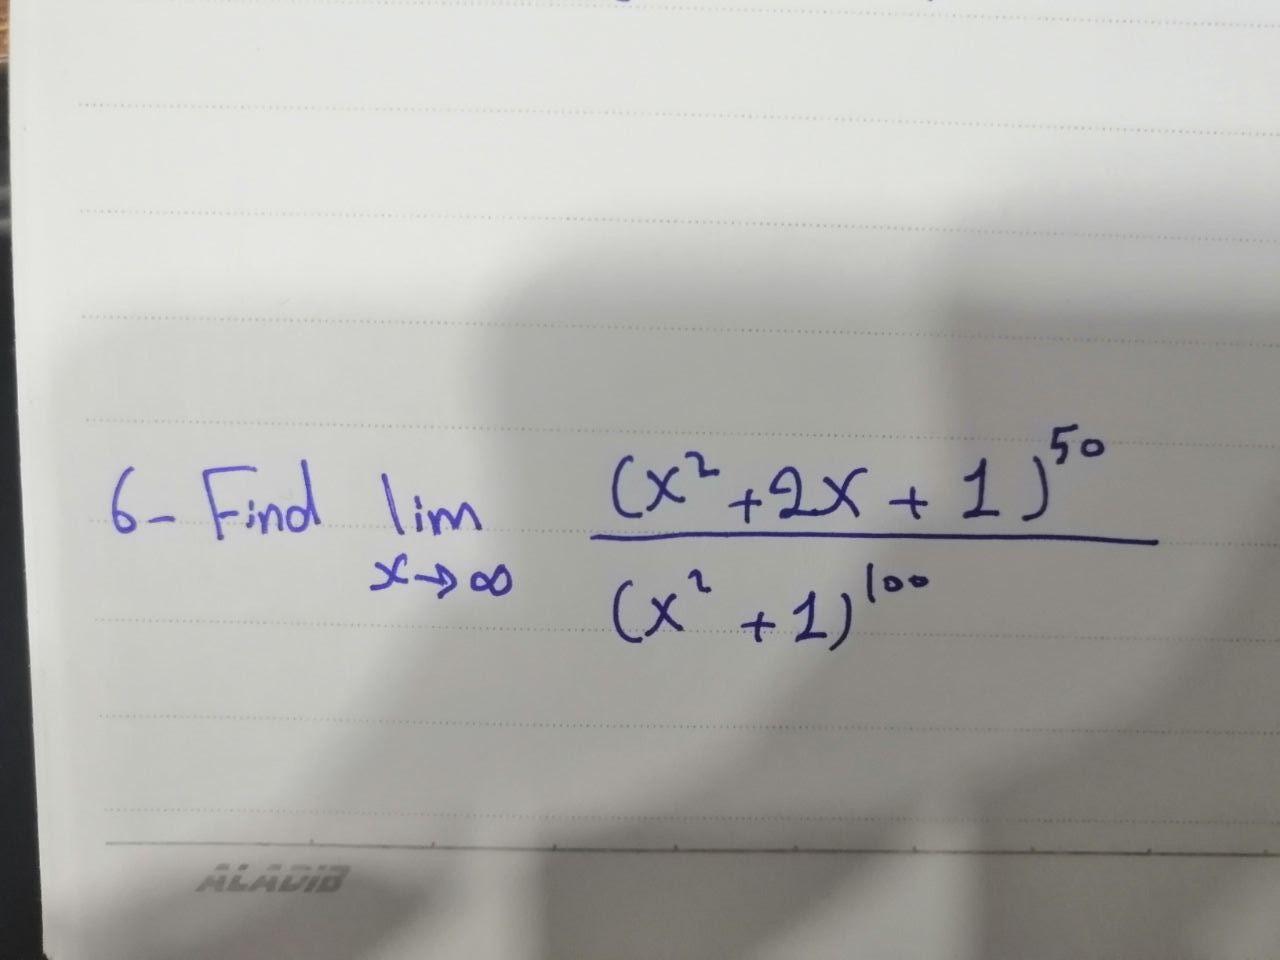 6- Find lim (x² + 2x + 1)⁵⁰
x→∞ (x² + 1)¹⁰⁰
ALADIB